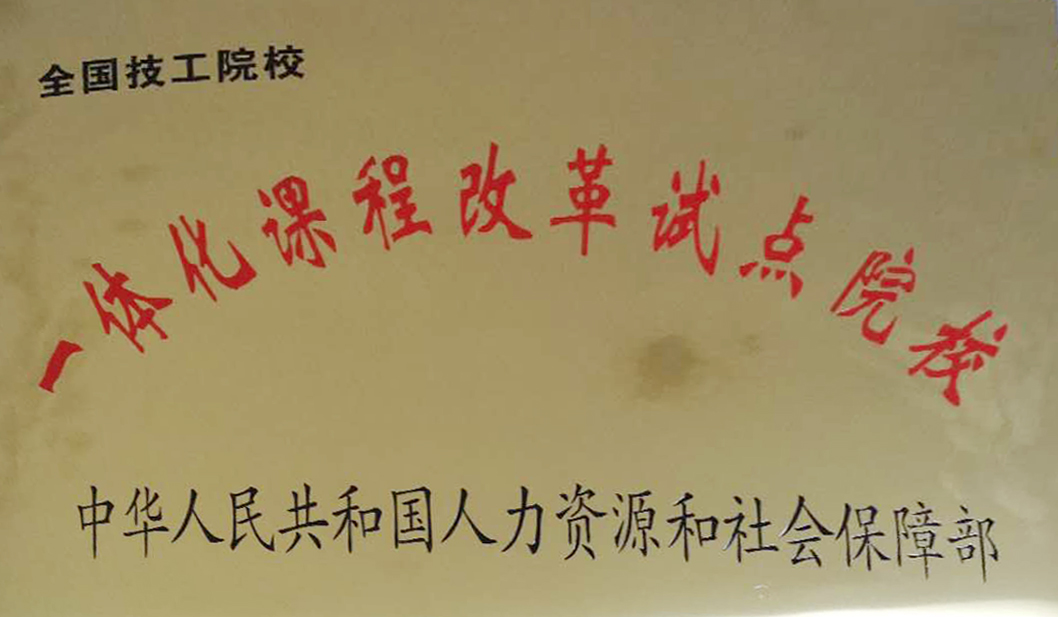 全国技工院校
一体化课程改革试点院校
中华人民共和国人力资源和社会保障部